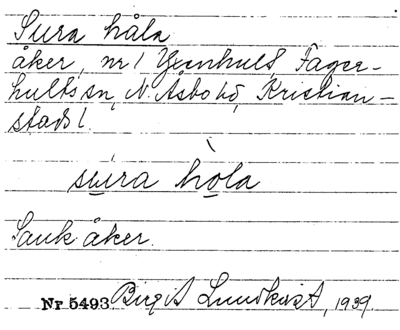 Sura håla
åker, nr 1 Yxenhult, Fager-
hults sn, N. Åsbo hd, Kristian-
stads l.
súra hòla
Sank åker.
Nr 5493 Birgit Lundkvist, 1939.